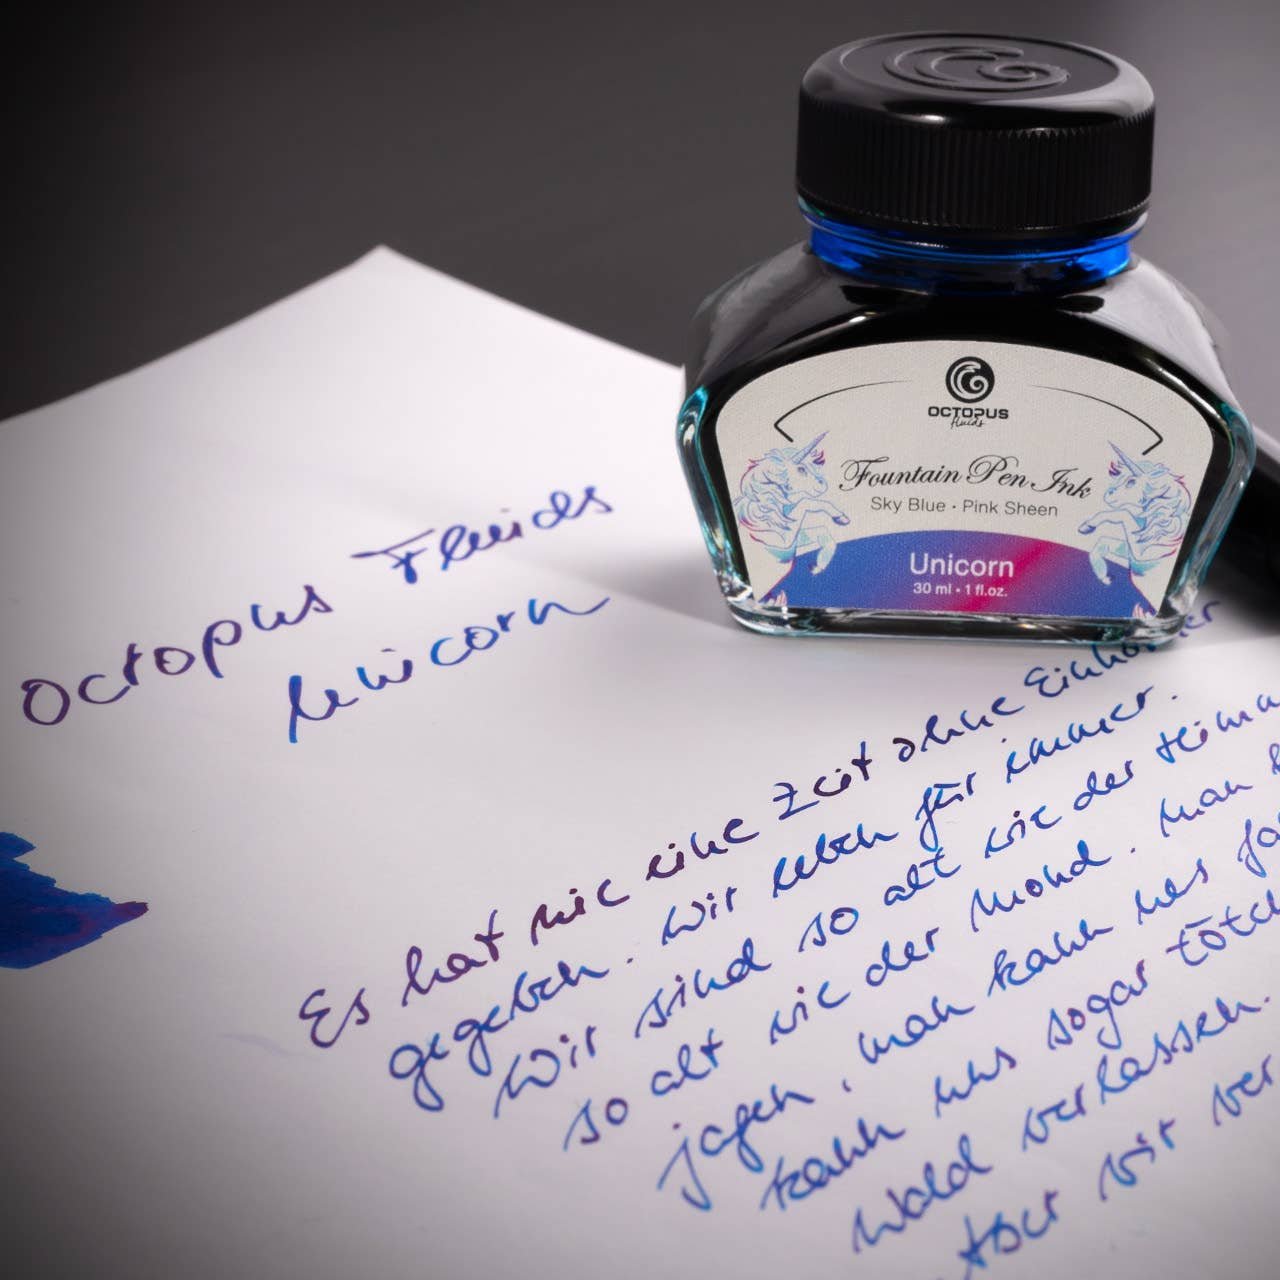 OCTOPUS
fluids
Fountain Pen Ink
Sky Blue • Pink Sheen
Unicorn
30 ml • 1 fl.oz.
Octopus Fluids
Unicorn
Es hat nie eine Zeit ohne Einhörner
gegeben. Wir leben für immer.
Wir sind so alt wie der
so alt wie der Mond. Man
jagen, man kann uns
kann uns sogar
Wald verlassen.
Aber wir